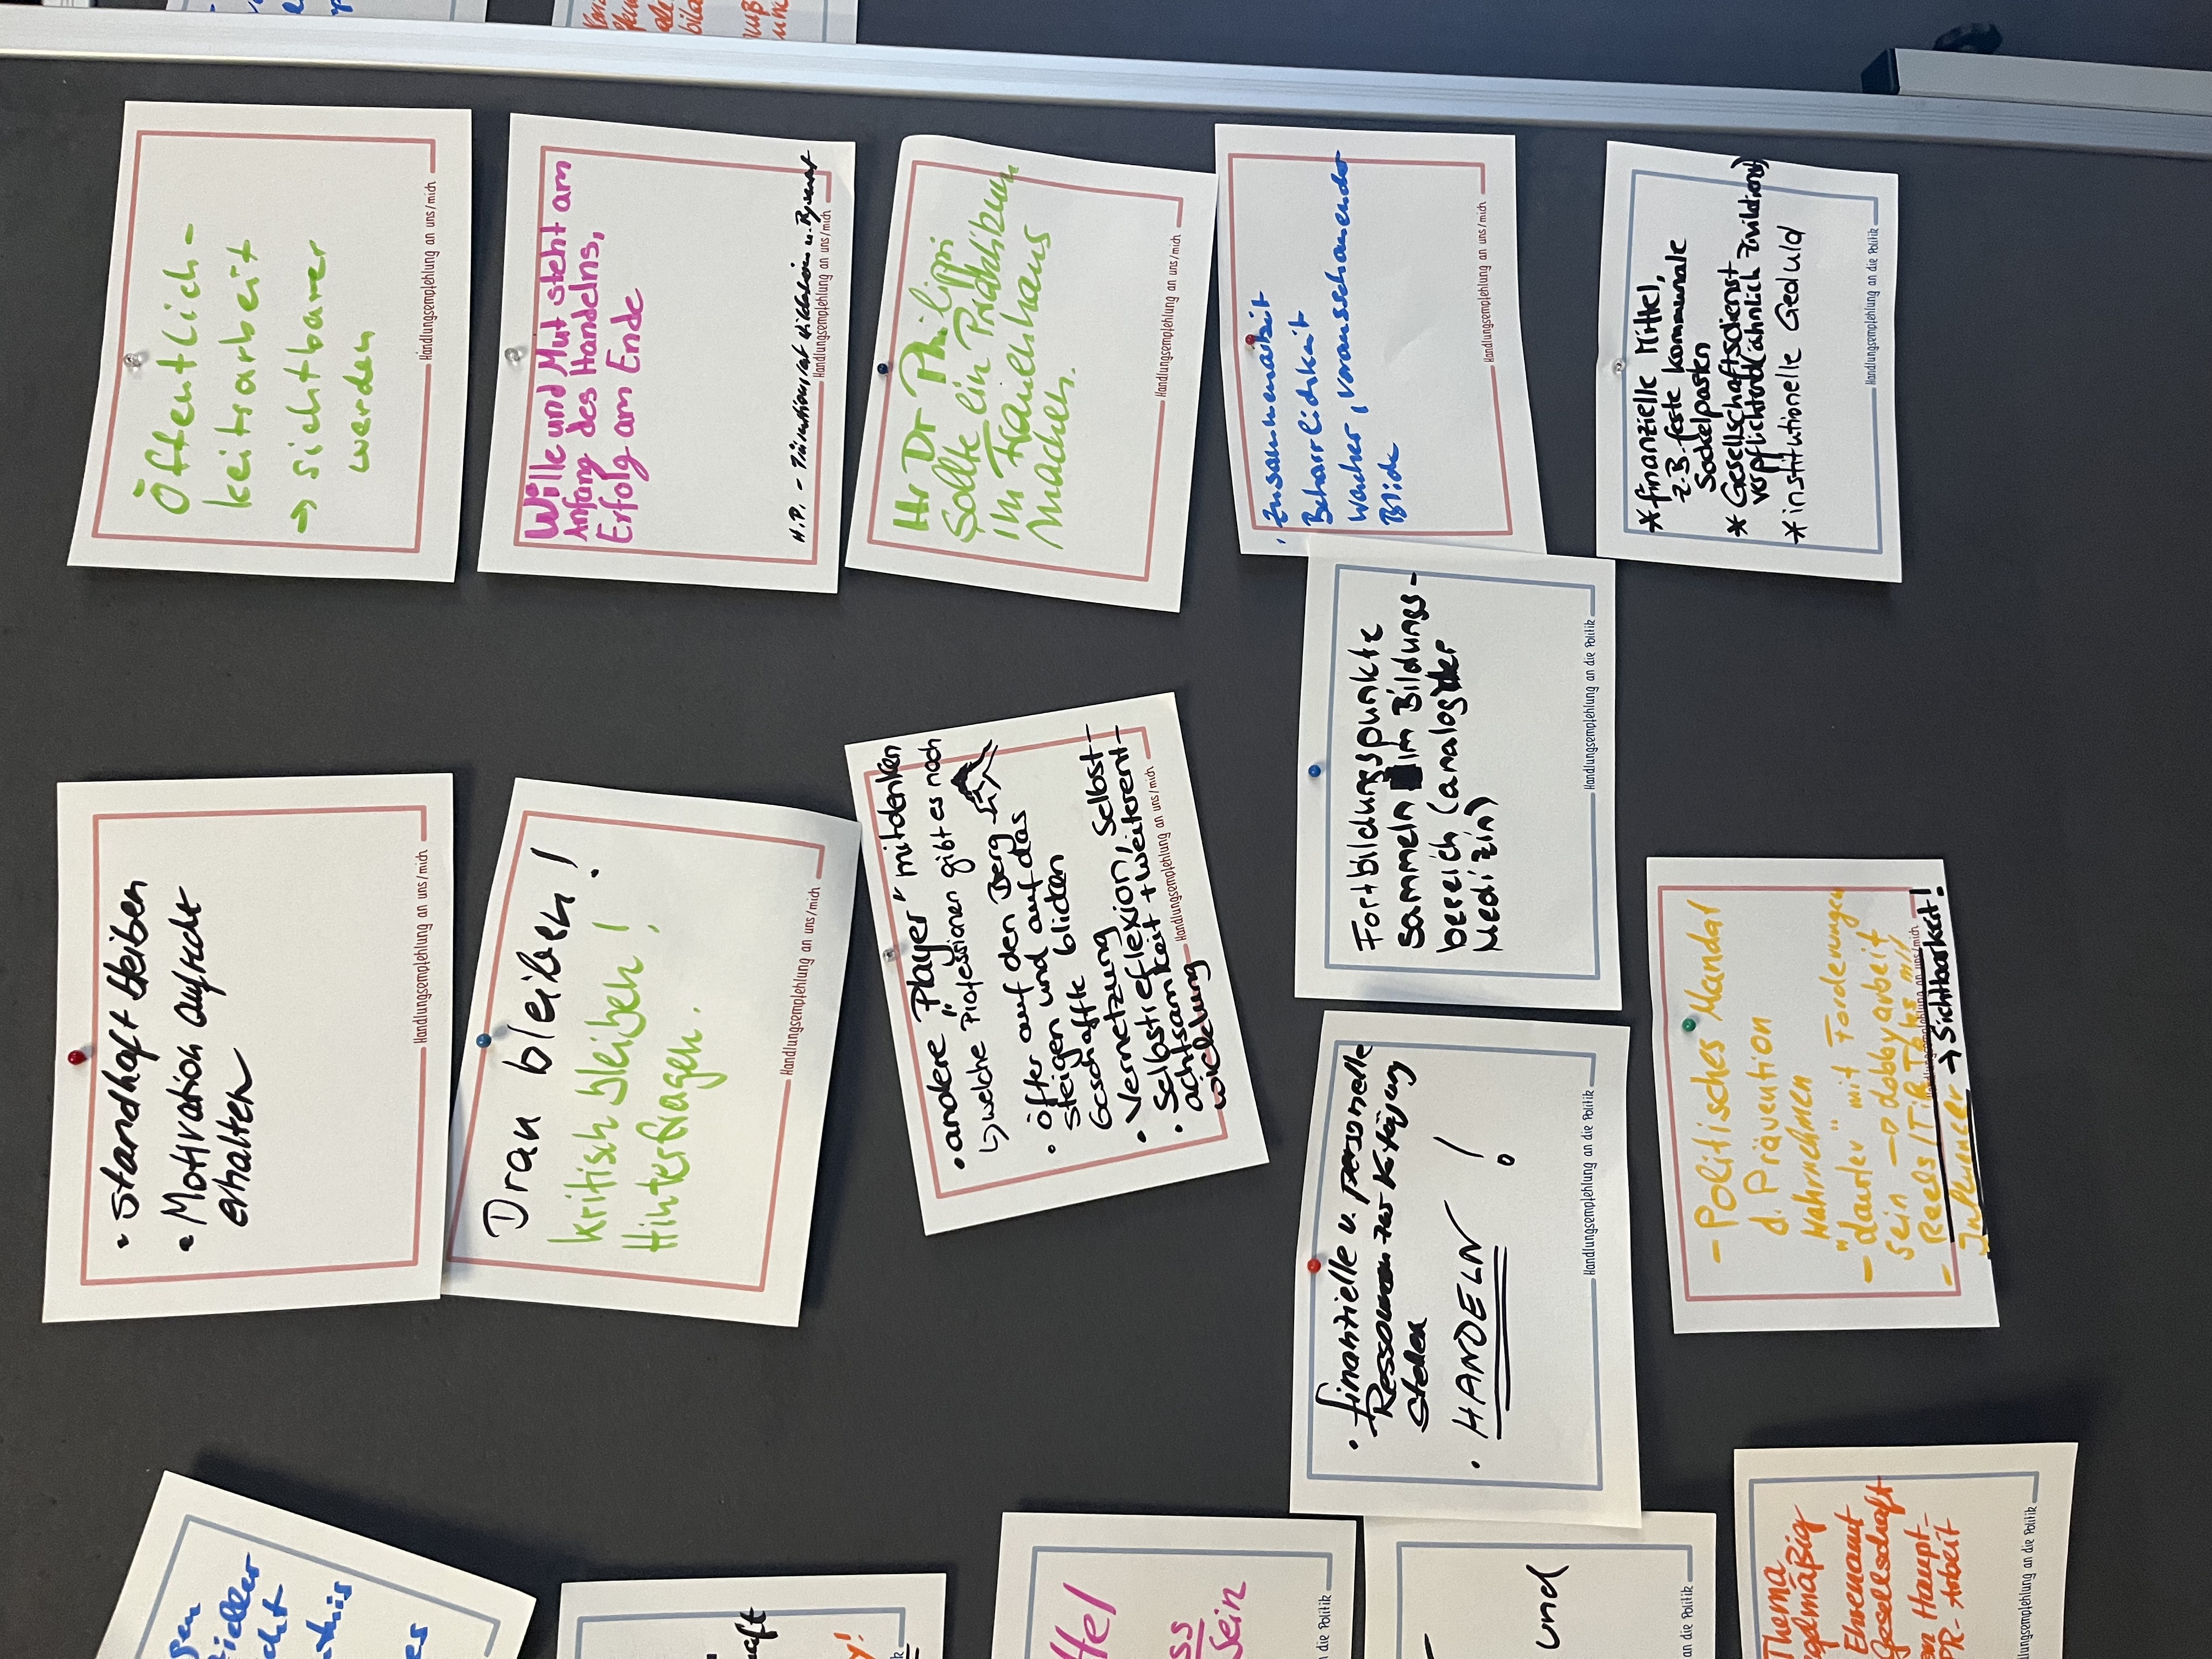 • Standhaft bleiben
• Motivation aufrecht
erhalten
Handlungsempfehlung an uns/mich
Öffentlich-
keitsarbeit
→ sichtbarer
werden
Handlungsempfehlung an uns/mich
Dran bleiben!
kritisch bleiben!
Hinterfragen.
Handlungsempfehlung an uns/mich
Wille und Mut steht am
Anfang des Handelns,
Erfolg am Ende
H.P. -
Handlungsempfehlung an uns/mich
• andere "Player" mitdenken
↳ welche Professionen gibt es noch
• öfter auf den Berg
steigen und auf das
Geschaffte blicken
• Vernetzung
• Selbstreflexion, Selbst-
achtsamkeit + Weiterent-
wicklung
Handlungsempfehlung an uns/mich
Hr Dr Philippi
Sollte ein Praktikum
im Frauenhaus
machen.
Handlungsempfehlung an uns/mich
Zusammenarbeit
Beharrlichkeit
Wacher, vorausschauender
Blick
Handlungsempfehlung an uns/mich
• finanzielle u. personelle
Ressourcen zur Verfügung
stellen
• HANDELN!
Handlungsempfehlung an die Politik
Fortbildungspunkte
sammeln im Bildungs-
bereich (analog der
Medizin)
Handlungsempfehlung an die Politik
* finanzielle Mittel,
z.B. feste kommunale
Sockelposten
* Gesellschaftsdienst
verpflichtend (ähnlich Zivildienst)
* institutionelle Geduld
Handlungsempfehlung an die Politik
- Politisches Mandat
d. Prävention
wahrnehmen
- "lauter" mit Forderungen
sein → Lobbyarbeit
- Reels / TikToks m/
Influencer → Sichtbarkeit!
Handlungsempfehlung an uns/mich
die Politik
und
an die Politik
Thema
Ehrenamt
Gesellschaft
Haupt-
PR-Arbeit
lungsempfehlung an die Politik